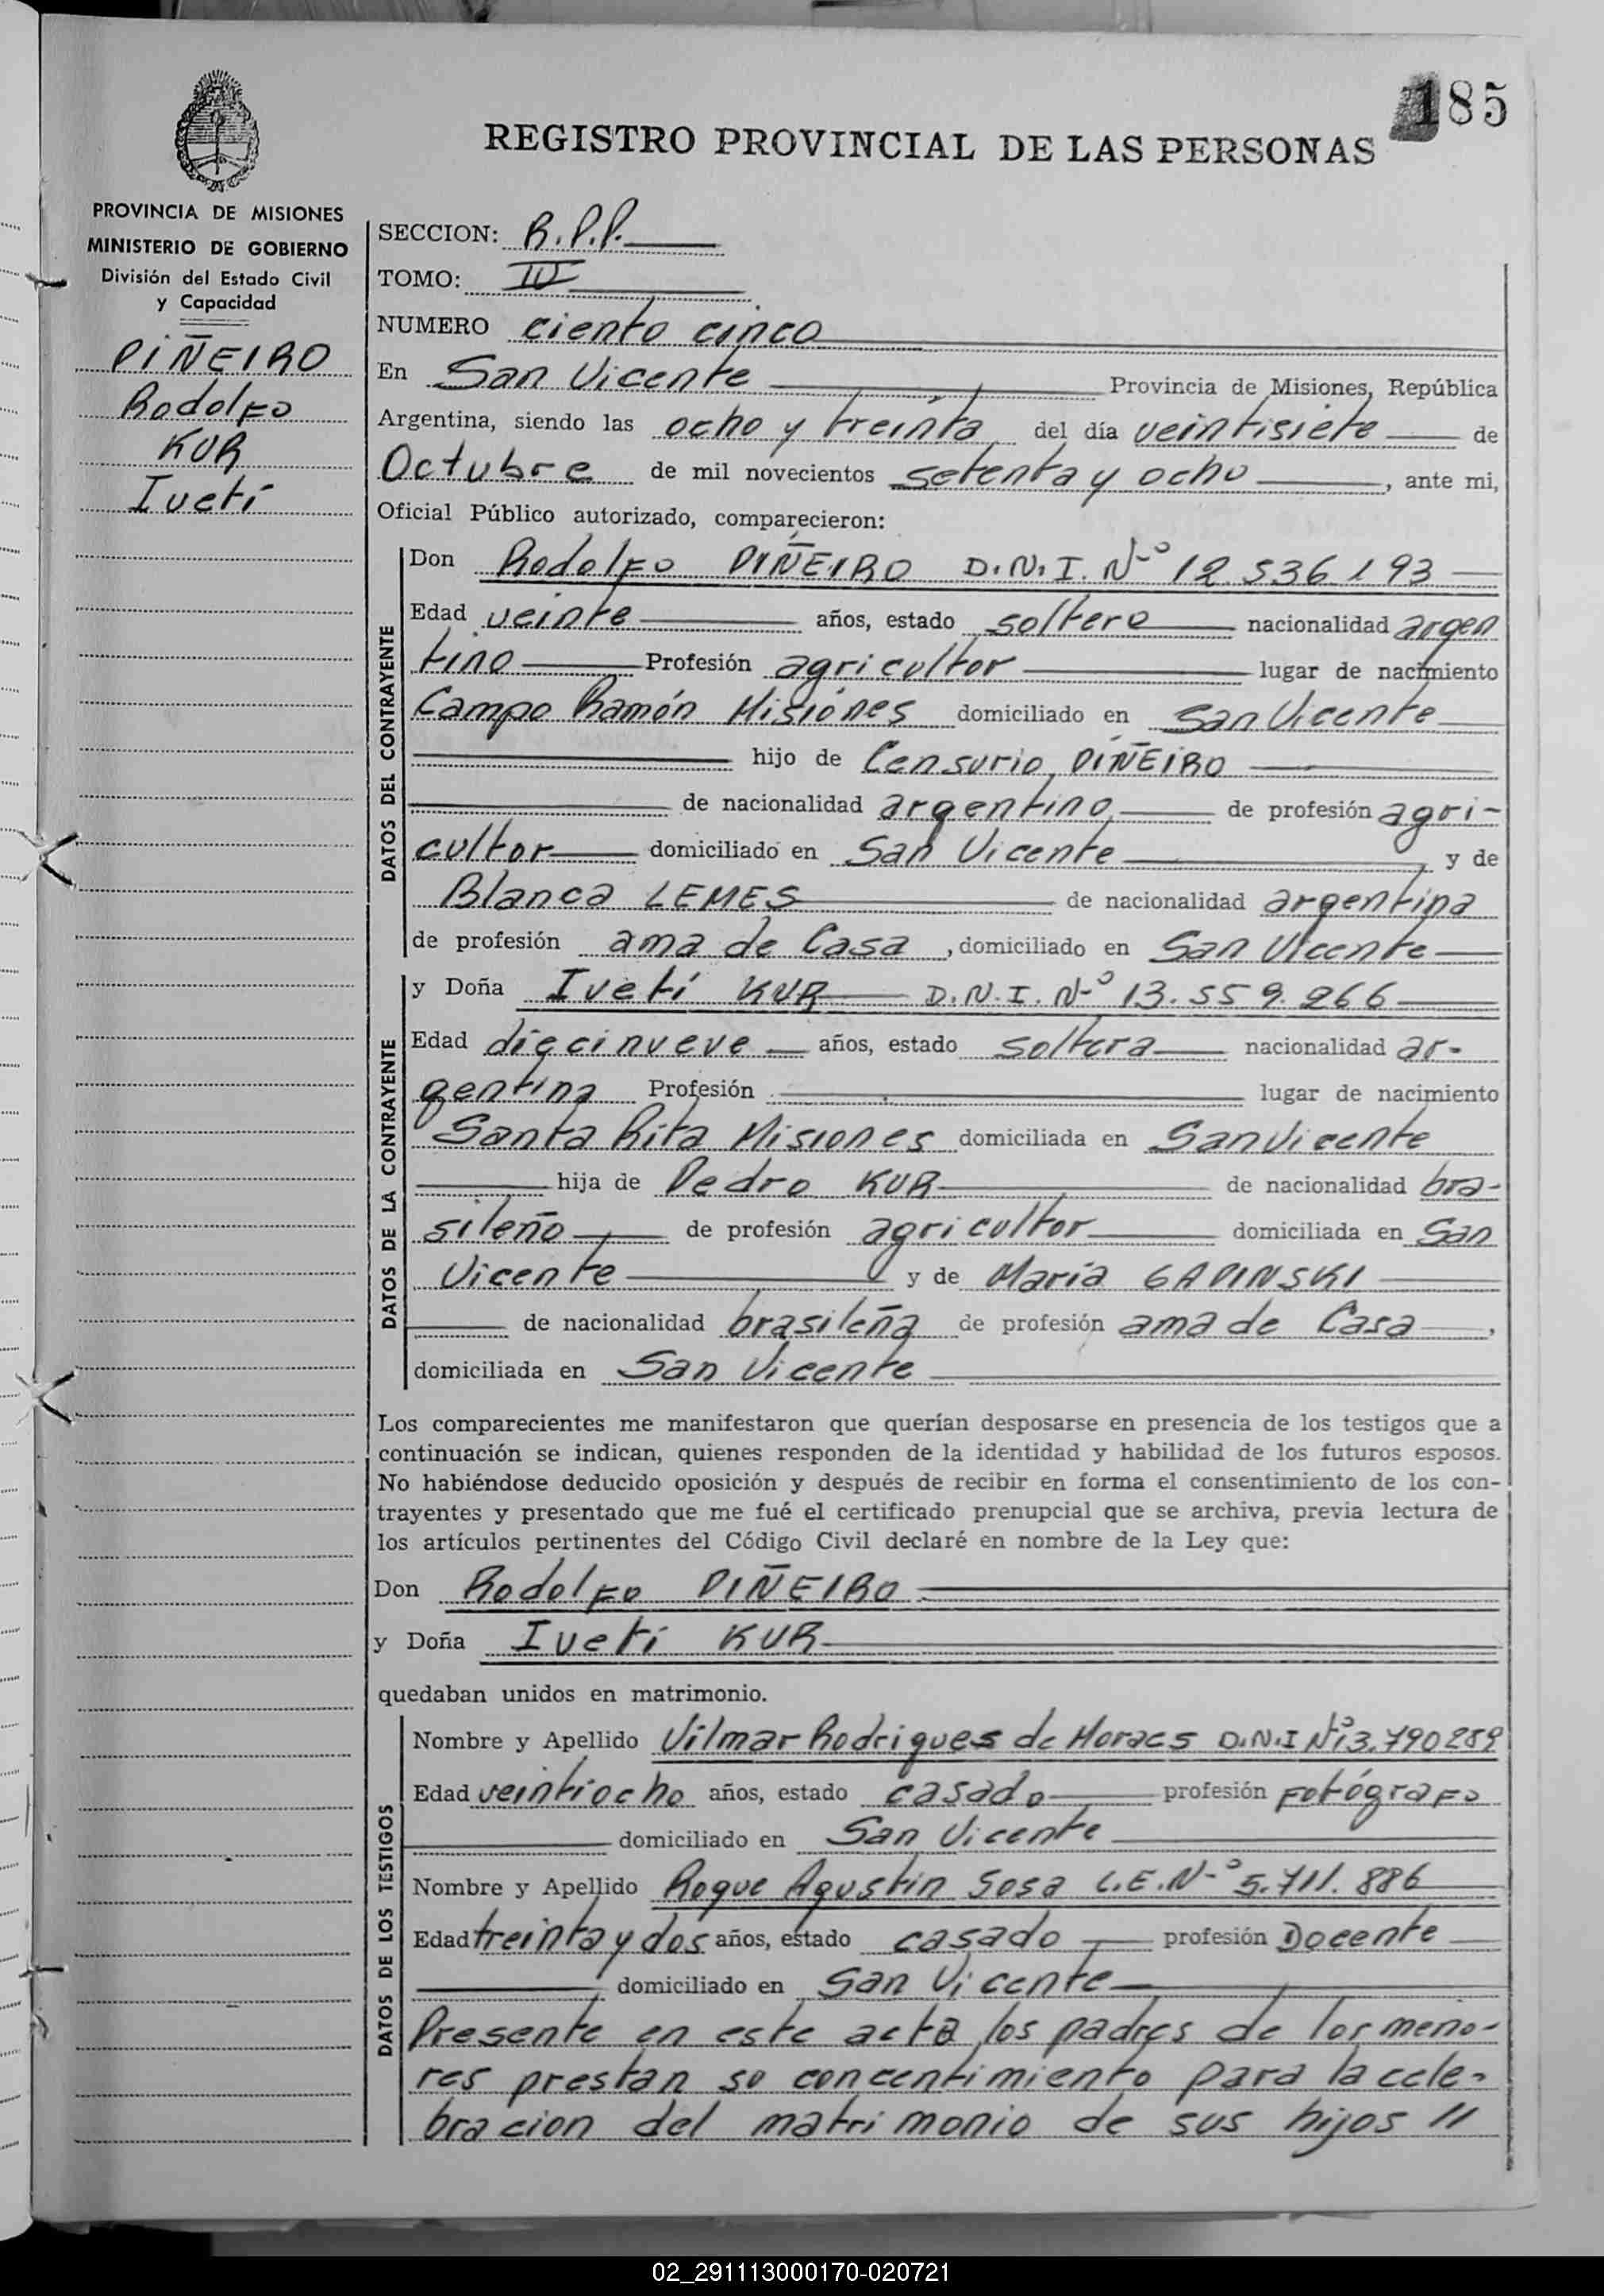 185
REGISTRO PROVINCIAL DE LAS PERSONAS
PROVINCIA DE MISIONES
MINISTERIO DE GOBIERNO
División del Estado Civil
y Capacidad
PIÑEIRO
Rodolfo
KUR
Ivetí
SECCION: R.P.P.
TOMO: IV
NUMERO ciento cinco
En San Vicente Provincia de Misiones, República
Argentina, siendo las ocho y treinta del día veintisiete de
Octubre de mil novecientos setenta y ocho, ante mi,
Oficial Público autorizado, comparecieron:
DATOS DEL CONTRAYENTE
Don Rodolfo PIÑEIRO D.N.I. Nº 12.536.193
Edad veinte años, estado soltero nacionalidad argen
tino Profesión agricultor lugar de nacimiento
Campo Ramón Misiones domiciliado en San Vicente
hijo de Censurio PIÑEIRO
de nacionalidad argentino de profesión agri-
cultor domiciliado en San Vicente y de
Blanca LEMES de nacionalidad argentina
de profesión ama de Casa, domiciliado en San Vicente
DATOS DE LA CONTRAYENTE
y Doña Ivetí KUR D.N.I. Nº 13.559.266
Edad diecinueve años, estado soltera nacionalidad ar-
gentina Profesión lugar de nacimiento
Santa Rita Misiones domiciliada en San Vicente
hija de Pedro KUR de nacionalidad bra-
sileño de profesión agricultor domiciliada en San
Vicente y de María GAPINSKI
de nacionalidad brasileña de profesión ama de Casa,
domiciliada en San Vicente
Los comparecientes me manifestaron que querían desposarse en presencia de los testigos que a
continuación se indican, quienes responden de la identidad y habilidad de los futuros esposos.
No habiéndose deducido oposición y después de recibir en forma el consentimiento de los con-
trayentes y presentado que me fué el certificado prenupcial que se archiva, previa lectura de
los artículos pertinentes del Código Civil declaré en nombre de la Ley que:
Don Rodolfo PIÑEIRO
y Doña Ivetí KUR
quedaban unidos en matrimonio.
DATOS DE LOS TESTIGOS
Nombre y Apellido Vilmar Rodrigues de Moraes D.N.I Nº 13.790289
Edad veintiocho años, estado casado profesión Fotógrafo
domiciliado en San Vicente
Nombre y Apellido Roque Agustin Sosa L.E. Nº 5.711.886
Edad treinta y dos años, estado casado profesión Docente
domiciliado en San Vicente
Presente en este acto los padres de los meno-
res prestan su concentimiento para la cele-
bracion del matrimonio de sus hijos //
02_291113000170-020721